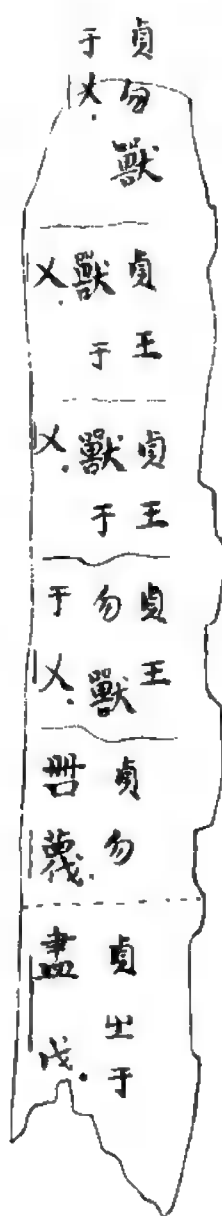 貞勿獸
于乂.
貞王
獸于
乂.
貞王
獸于
乂.
貞王
勿獸
于乂.
貞勿
蔑.
貞㞢于
盡戊.